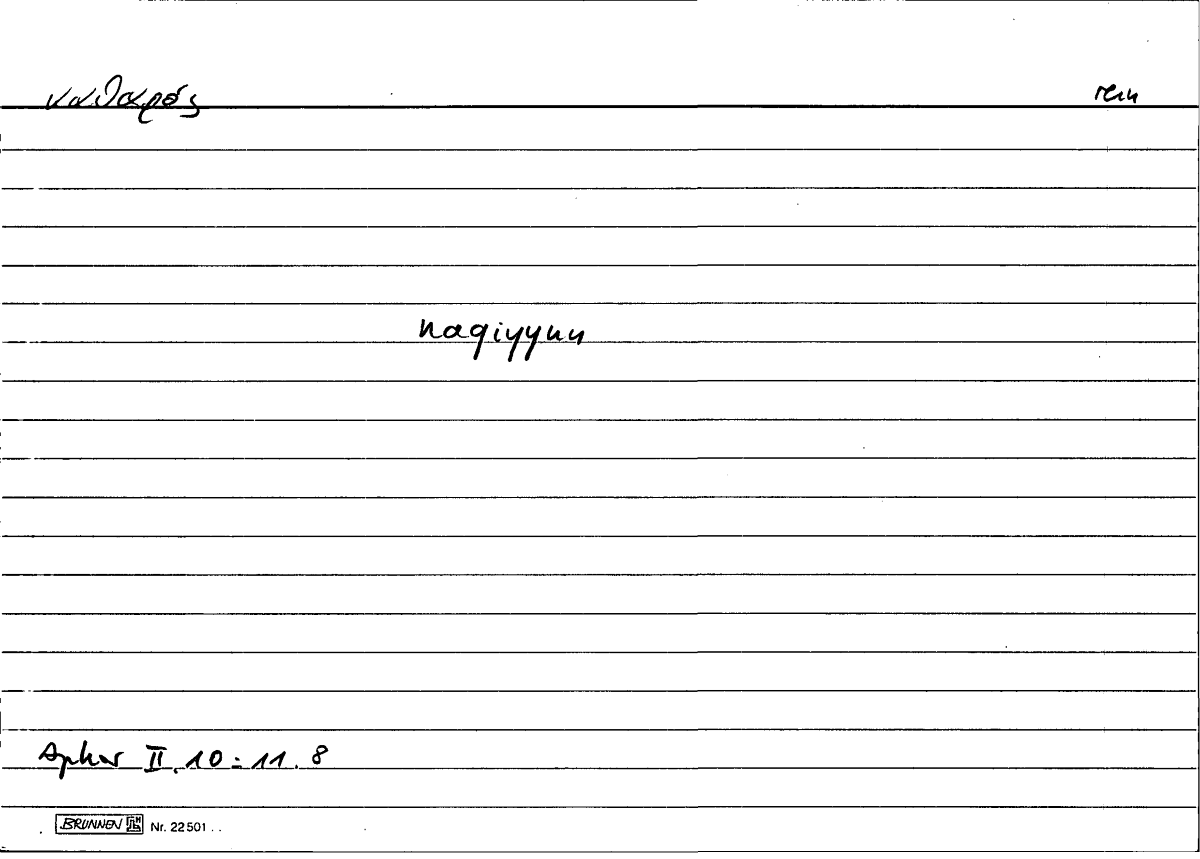 καθαρός rein
naqiyyun
Aphor II. 10 = 11. 8
BRUNNEN Nr. 22 501 . .